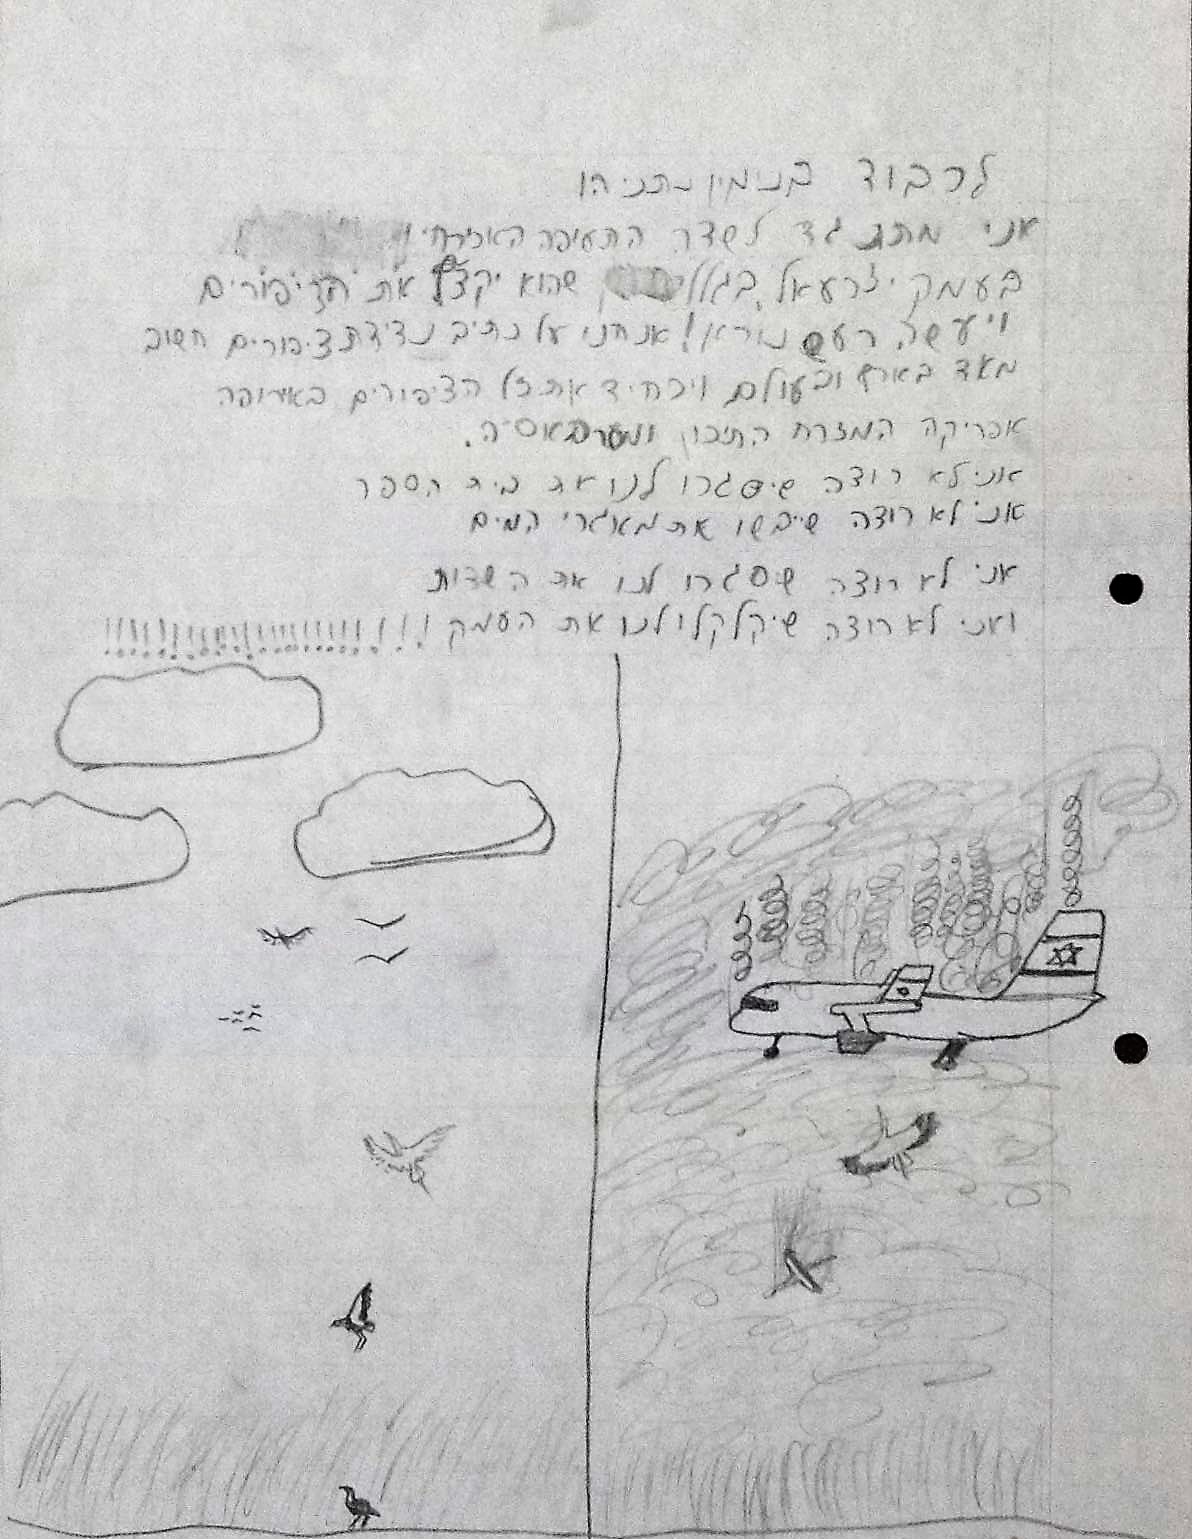 לרבוד בנימין נתניהו
אני מתנגד לשדר התעופה האזרחי
בעמק יזרעאל בגלל שהוא יקצץ את הציפורים
ויעשה רעש נורא! אנחנו על נתיב נדידת ציפורים חשוב
מאד בארץ ובעולם ויכחיד את כל הציפורים באירופה
אפריקה המזרח התיכון
אני לא רוצה שיסגרו לנו את בית הספר
אני לא רוצה שייבשו את מאגרי המים
אני לא רוצה שיסגרו לנו את השדות
ואני לא רוצה שיקלקלו לנו את העמק !!!!!!!!!!!!!!!!!!!!!!